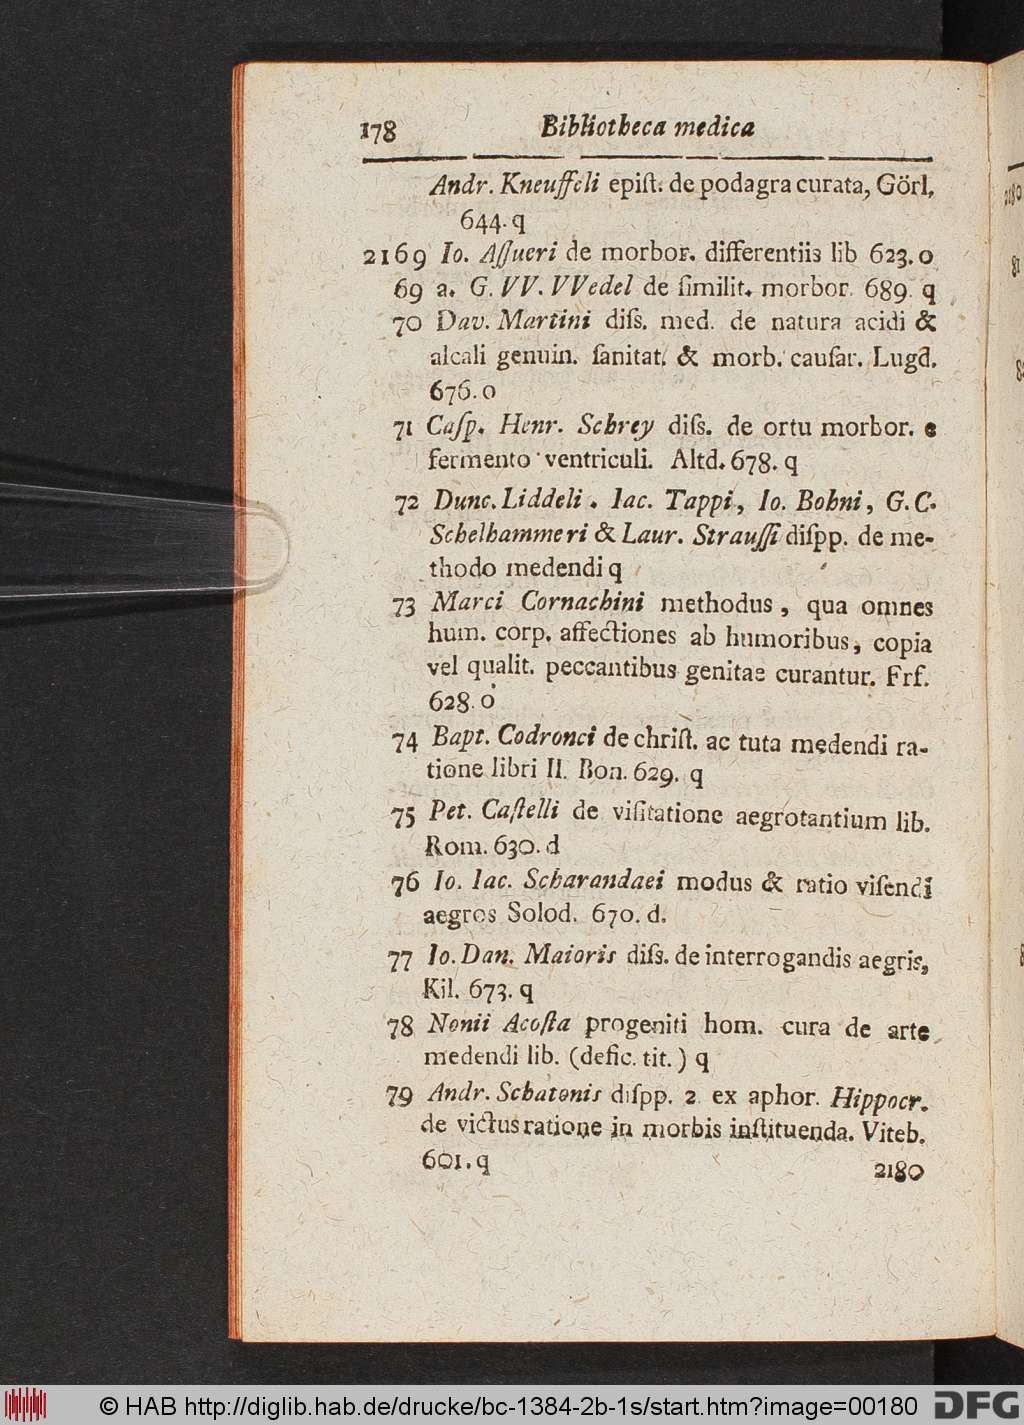 178 Bibliotheca medica
Andr. Kneuffeli epiſt. de podagra curata, Görl.
644. q
2169 Io. Aſſueri de morbor. differentiis lib 623. o
69 a. G. VV. VVedel de ſimilit. morbor. 689. q
70 Dav. Martini diſs. med. de natura acidi &
alcali genuin. ſanitat. & morb. cauſar. Lugd.
676. o
71 Caſp. Henr. Schrey diſs. de ortu morbor. e
fermento ventriculi. Altd. 678. q
72 Dunc. Liddeli. Iac. Tappi, Io. Bohni, G. C.
Schelhammeri & Laur. Strauſſi diſpp. de me-
thodo medendi q
73 Marci Cornachini methodus, qua omnes
hum. corp. affectiones ab humoribus, copia
vel qualit. peccantibus genitae curantur. Frf.
628. o
74 Bapt. Codronci de chriſt. ac tuta medendi ra-
tione libri II. Bon. 629. q
75 Pet. Caſtelli de viſitatione aegrotantium lib.
Rom. 630. d
76 Io. Iac. Scharandaei modus & ratio viſendi
aegros Solod. 670. d.
77 Io. Dan. Maioris diſs. de interrogandis aegris,
Kil. 673. q
78 Nonii Acoſta progeniti hom. cura de arte
medendi lib. (defic. tit.) q
79 Andr. Schatonis diſpp. 2 ex aphor. Hippocr.
de victus ratione in morbis inſtituenda. Viteb.
601. q
2180
© HAB http://diglib.hab.de/drucke/bc-1384-2b-1s/start.htm?image=00180
DFG